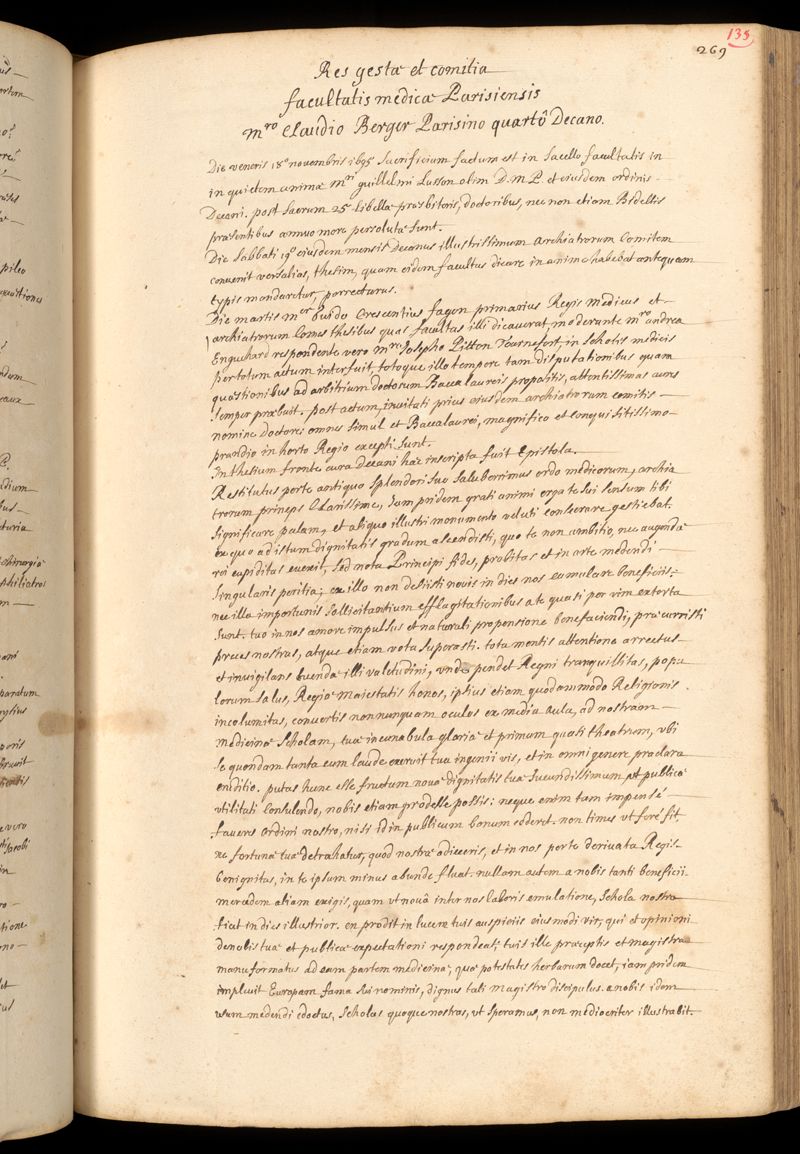 135
269
Res gestæ et comitia
facultatis medicæ Parisiensis
mro Claudio Berger Parisino quartô Decano.
Die veneris 18o novembris 1695 Sacrificium factum est in Sacello facultatis in
in quietem animæ Mri guillelmi Lusson olim D.M.P. et eiusdem ordinis
Decani. post Sacrum 25 Libellæ præsbiteris, doctoribus, nec non etiam Bidellis
præsentibus annuo more persolutæ sunt.
Die Sabbati 19o eiusdem mensis Decanus illustrissimum Archiatrorum Comitem
convenit versalias, thesim, quam eidem facultas dicare in animo habebat antequam
typis mandaretur, porrecturus.
Die martis mer guido Crescentius fagon primarius Regis Medicus et
archiatrorum Comes thesibus quas facultas illi dicaverat moderante mro andrea
Enguehard respondente vero mro Josepho Pitton Tournefort, in scholis medicis
per totum actum interfuit totoque illo tempore tam disputationibus quam
quæstionibus ad arbitrium doctorum Baccalaureis propositis, attentissimas aures
semper præbuit. post actum, invitati prius eiusdem archiatrorum comitis
nomine Doctores omnes simul et Baccalaurei, magnifico et conquisitissimo
prandio in horto Regio excepti sunt.
In thesium fronte cura Decani hæc inscripta fuit Epistola.
Restitutus per te antiquo splendori suo saluberrimus ordo medicorum, archia
trorum princeps Clarissime, Jam pridem grati animi erga te sui sensum tibi
significare palam, et aliquo illustri monumento veluti consecrare gestiebat.
Ex quo ad istum dignitatis gradum ascendisti, quo te non ambitio, nec augendæ
rei cupiditas evexit, sed nota Principi fides, probitas et in arte medendi
singularis peritia; ex illo non destitisti novis in dies nos cumulare beneficiis;
nec illa importunis sollicitantium efflagitationibus a te quasi per vim extorta
sunt. tuo in nos amore impulsus et naturali propensione benefaciendi, præcurristi
preces nostras, atque etiam vota superasti. tota mentis attentione arrectus
et invigilans tuendæ illi valetudini, unde pendet Regni tranquillitas, popu
lorum salus, Regiæ maiestatis honos, ipsius etiam quodammodo Religionis
incolumitas, convertis nonnunquam oculos ex media aula, ad nostram
medicinæ Scholam, tuæ incunabula gloriæ et primum quasi theatrum, ubi
se quondam tanta cum laude exeruit tua ingenii vis, et in omni genere præclara
eruditio. putas hunc esse fructum novæ dignitatis tuæ Jucundissimum ut publicæ
utilitati consulendo, nobis etiam prodesse possis: neque enim tam impensè
faveres ordini nostro, nisi id in publicum bonum cederet. non times ut ferè fit,
ne fortunæ tuæ detrahatur, quod nostræ adieceris, et in nos per te derivata Regis
benignitas, in te ipsum minus abunde fluat. nullam autem a nobis tanti beneficii
mercedem aliam exigis, quam ut novâ inter nos laboris emulatione, Schola nostra
fiat in dies illustrior. en prodit in lucem tuis auspiciis eiusmodi vir, qui et opinioni
de nobis tuæ et publicæ expectationi respondeat; tuis ille præceptis et magistra
manu formatus ad eam partem medicinæ, quæ potestates herbarum docet, iam pridem
implevit Europam fama sui nominis, dignus tali magistro discipulus. a nobis idem
usum medendi edoctus, Scholas quoque nostras, ut speramus, non mediocriter illustrabit.